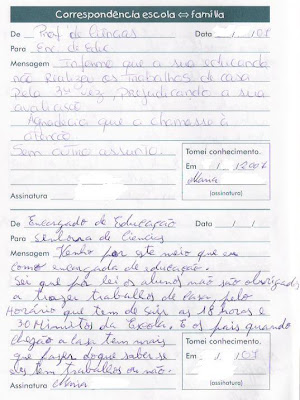 Correspondência escola ⇔ família
De Prof. de Ciências Data / / 07
Para Enc. de Educ.
Mensagem Informo que a sua educanda
não realiza os trabalhos de casa
pela 3ª vez, prejudicando a sua
avaliação.
Agradecia que a chamasse à
atenção.
Sem outro assunto.
Tomei conhecimento.
Em / / 2007
Maria
(assinatura)
Assinatura
De Encargado de Educação Data / /
Para senhora de Ciencias
Mensagem Venho por este meio que eu
como encargada de educação.
Sei que por lei os alunos não são obrigados
a trazer traballos de casa, pelo
Horário que tem de sair as 18 hores e
30 Minutos da Escola. E os pais quando
chegão a casa tem mais
que fazer doque saber se
eles tem traballos ou não.
Tomei conhecimento.
Em / / 07
(assinatura)
Assinatura Maria